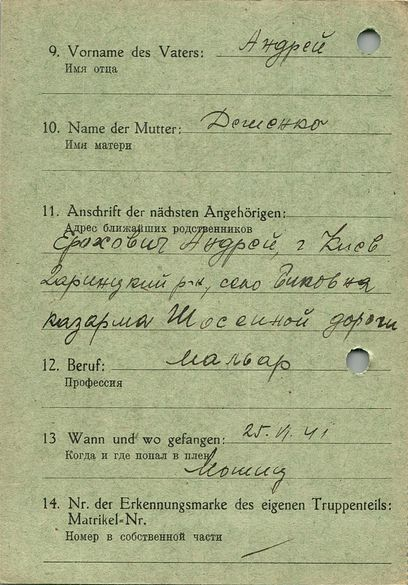 9. Vorname des Vaters: Андрей
Имя отца
10. Name der Mutter:
Имя матери
11. Anschrift der nächsten Angehörigen:
Адрес ближайших родственников
Ерохович Андрей, г Киев
р-н, село
казарма дороги
12. Beruf: маляр
Профессия
13 Wann und wo gefangen: 25.VI.41
Когда и где попал в плен
14. Nr. der Erkennungsmarke des eigenen Truppenteils:
Matrikel-Nr.
Номер в собственной части